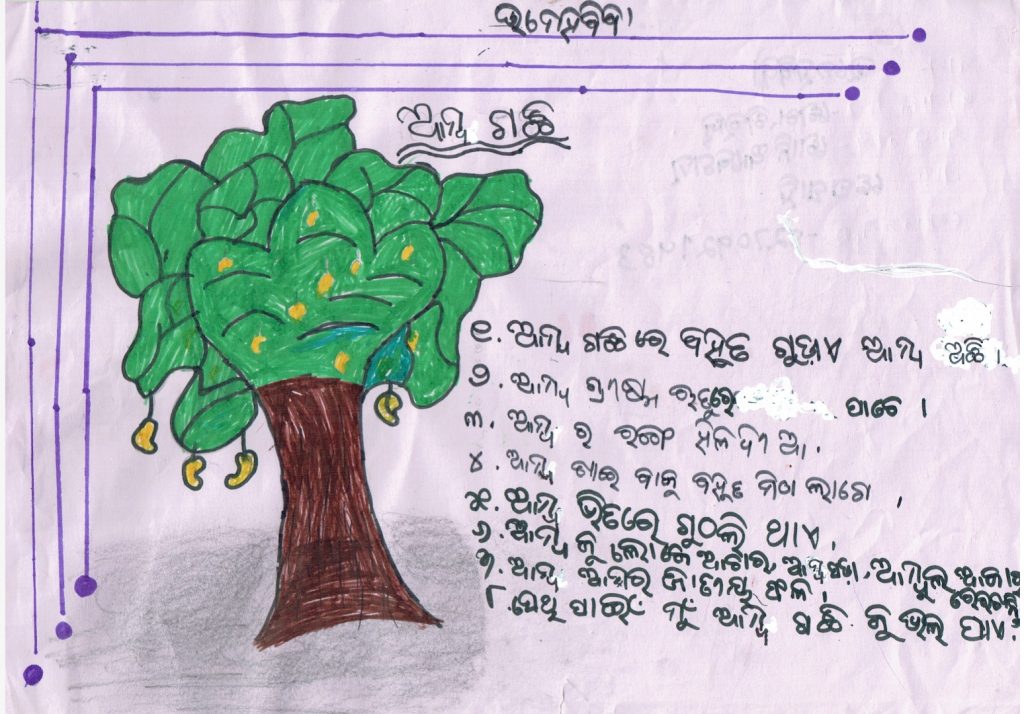 ଆମ୍ବ ଗଛ
୧. ଆମ୍ବ ଗଛ ରେ ବହୁତ ଗୁଡ଼ାଏ ଆମ୍ବ ଅଛି ।
୨. ଆମ୍ବ ଗ୍ରୀଷ୍ମ ଋତୁରେ ପାଚେ ।
୩. ଆମ୍ବ ର ରଙ୍ଗ ହଳଦୀଆ.
୪. ଆମ୍ବ ଖାଇ ବାକୁ ବହୁତ ମିଠା ଲାଗେ ।
୫. ଆମ୍ବ ଭିତରେ ଗୁଠଲି ଥାଏ.
୬. ଆମ୍ବ କୁ ଲୋକେ ଆଚାର, ଆମ୍ବସଢା, ଆମ୍ବୁଲ ଆକାରରେ
୭. ଆମ୍ବ ଆମର ଜାତୀୟ ଫଳ ।
୮. ସେଥି ପାଇଁ ମୁଁ ଆମ୍ବ ଗଛ କୁ ଭଲ ପାଏ.